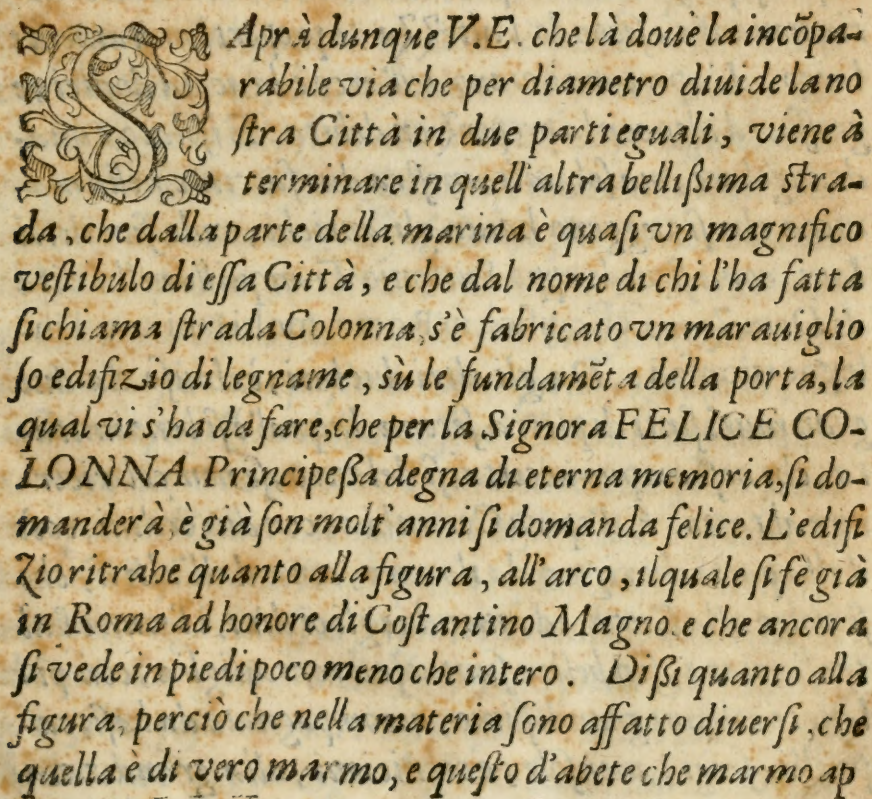 SAprà dunque V.E. che là doue la incõpa-
rabile via che per diametro diuide la no
ſtra Città in due parti eguali, viene à
terminare in quell'altra bellißima ſtra-
da, che dalla parte della marina è quaſi vn magnifico
veſtibulo di eſſa Città, e che dal nome di chi l'ha fatta
ſi chiama ſtrada Colonna, s'è fabricato vn marauiglio
ſo edifizio di legname, sù le fundamẽta della porta, la
qual vi s'ha da fare, che per la Signora FELICE CO-
LONNA Principeßa degna di eterna memoria, ſi do-
manderà, è già ſon molt'anni ſi domanda felice. L'edifi
zio ritrahe quanto alla figura, all'arco, ilquale ſi fè già
in Roma ad honore di Coſtantino Magno. e che ancora
ſi vede in piedi poco meno che intero. Dißi quanto alla
figura, perciò che nella materia ſono affatto diuerſi, che
quella è di vero marmo, e queſto d'abete che marmo ap